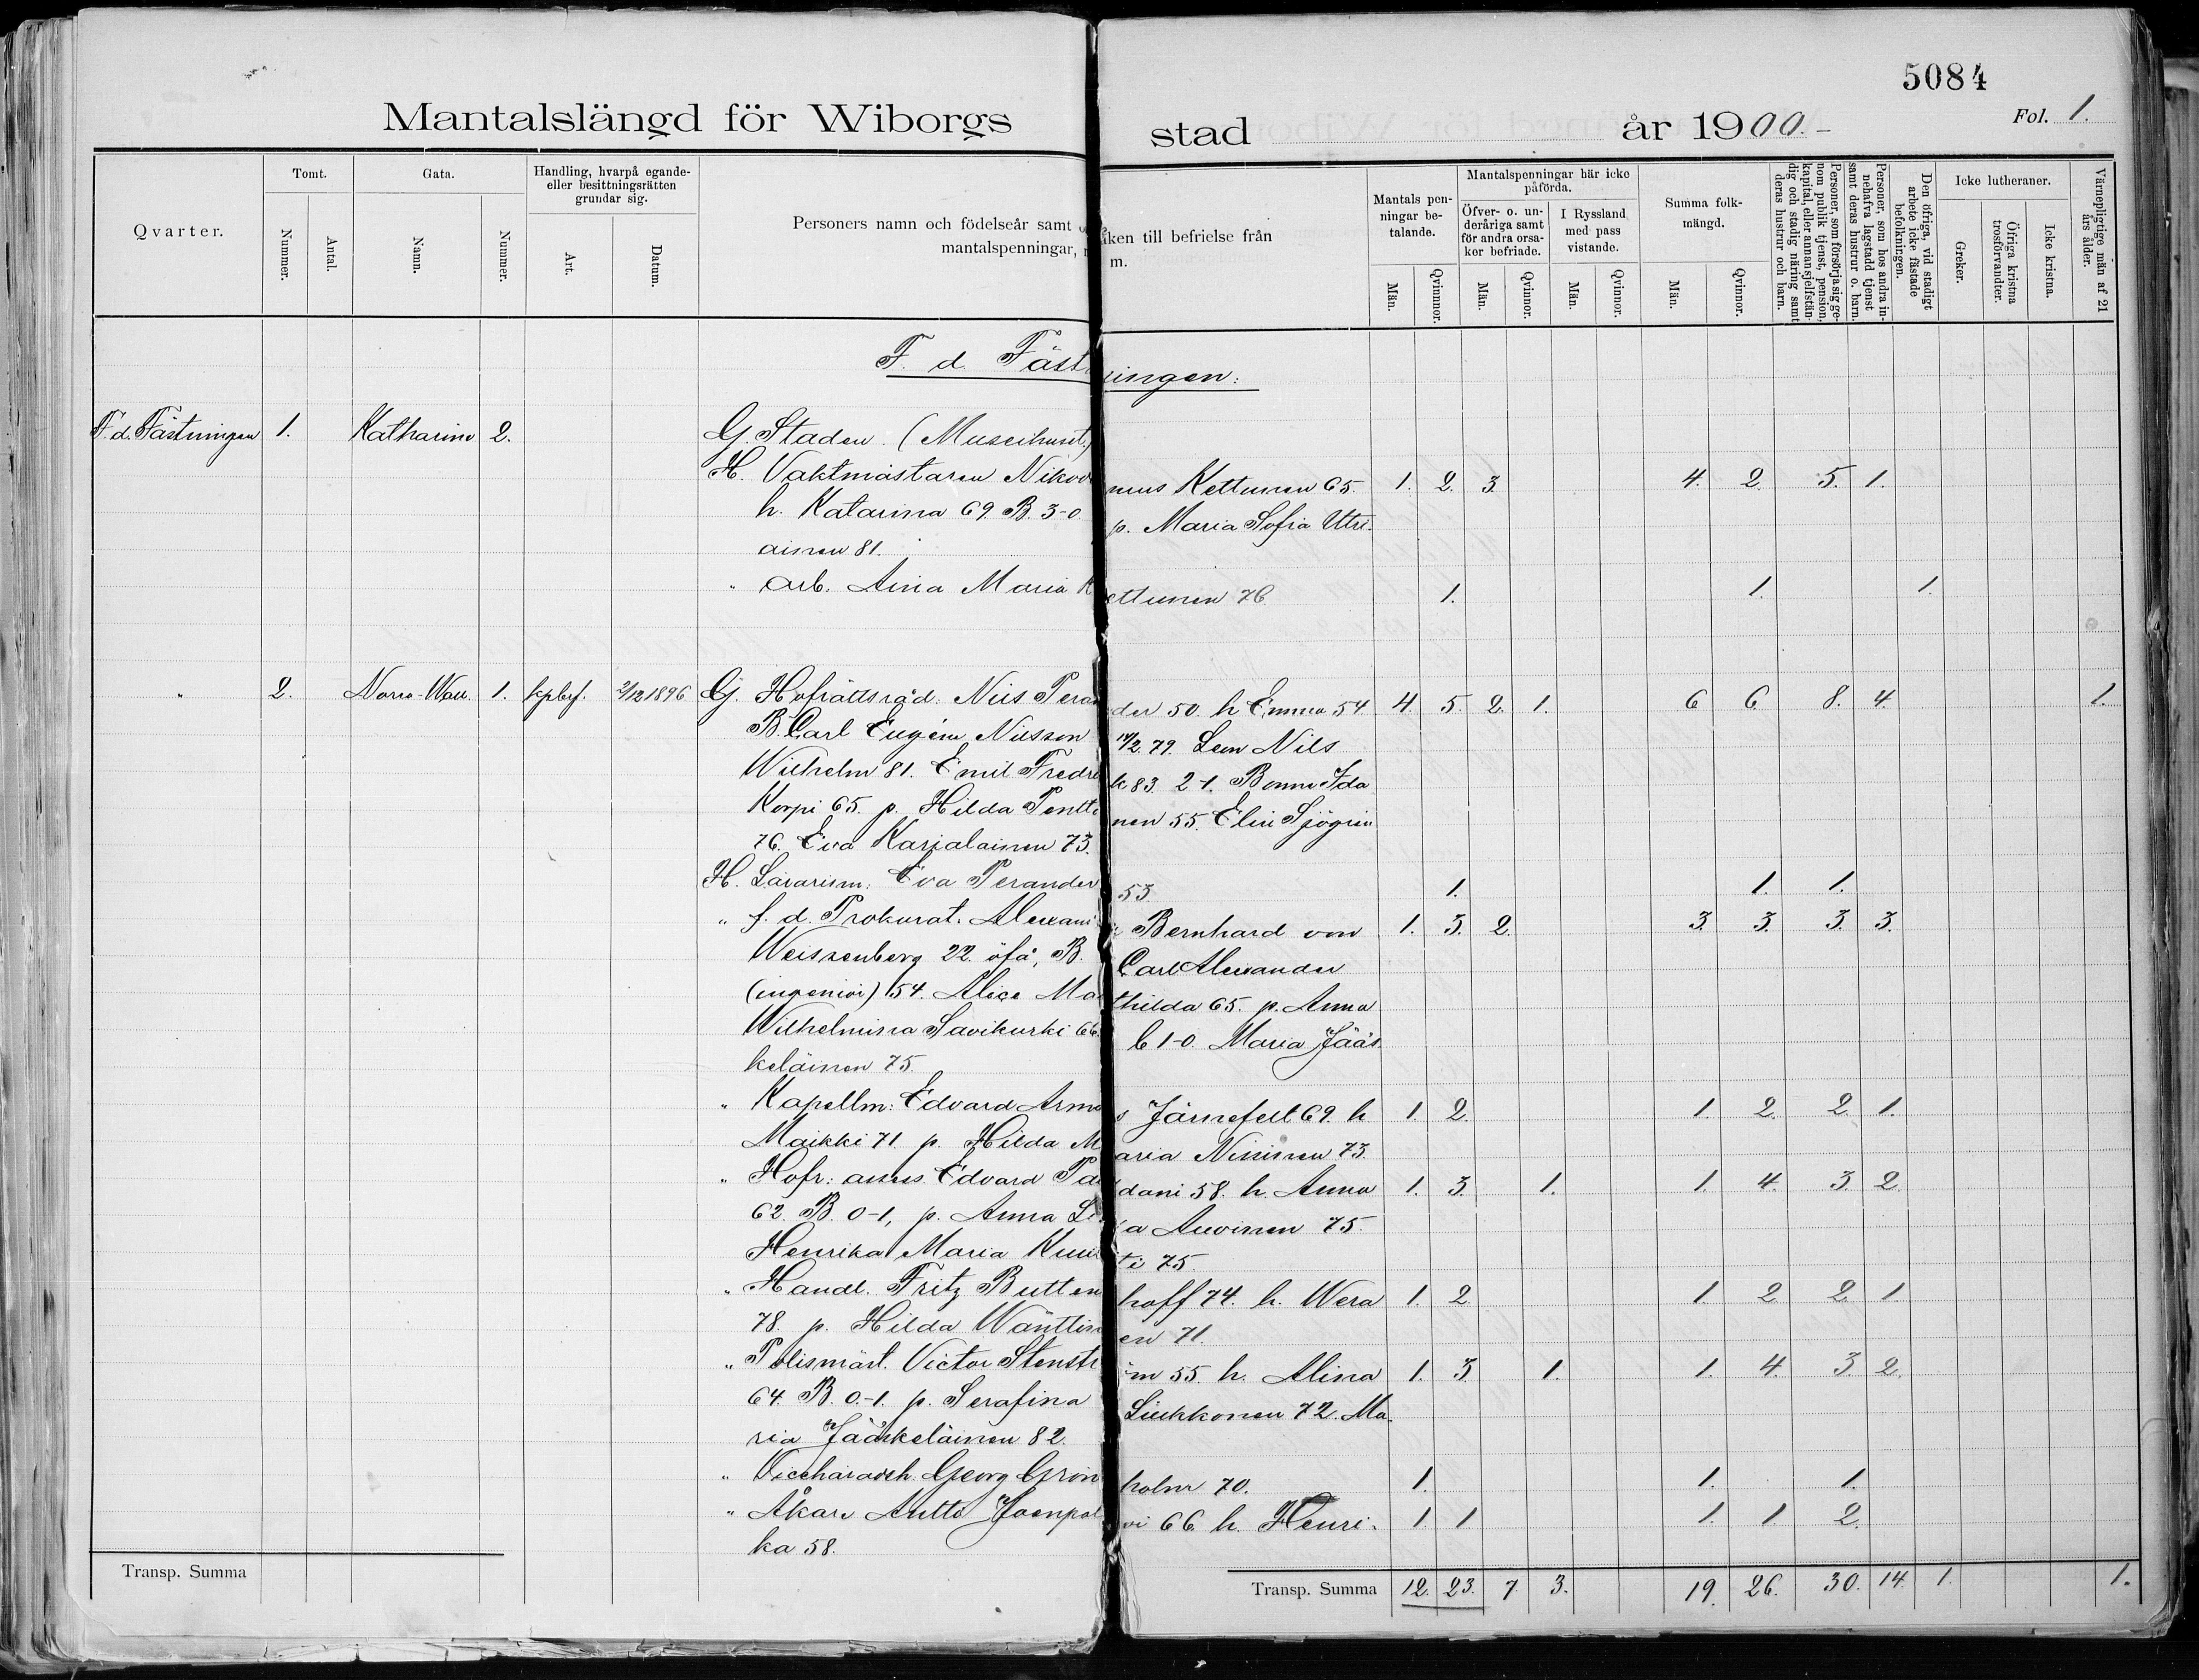 5084
Mantalslängd för Wiborgs stad år 1900.
Fol. 1.
Qvarter.
Tomt.
Nummer.
Antal.
Gata.
Namn.
Nummer.
Handling, hvarpå egande-
eller besittningsrätten
grundar sig.
Art.
Datum.
Personers namn och födelseår samt
åken till befrielse från
mantalspenningar, m.
Mantals pen-
ningar be-
talande.
Män.
Qvinnor.
Mantalspenningar här icke
påförda.
Öfver- o. un-
deråriga samt
för andra orsa-
ker befriade.
Män.
Qvinnor.
I Ryssland
med pass
vistande.
Män.
Qvinnor.
Summa folk-
mängd.
Män.
Qvinnor.
Personer, som försörja sig ge-
nom publik tjenst, pension,
kapital, eller annan sjelfstän-
dig och stadig näring samt
deras hustrur och barn.
Personer, som hos andra in-
nehafva lagstadd tjenst
samt deras hustrur o. barn.
Den öfriga, vid stadigt
arbete icke fästade
befolkningen.
Icke lutheraner.
Greker.
Öfriga kristna
trosförvandter.
Icke kristna.
Värnepligtige män af 21
års ålder.
F. d. Fästningen:
F. d. Fästningen 1. Katharine 2. G. Staden. (Museihuset)
H. Vaktmästaren Nikodemus Kettunen 65. 1. 2. 3. 4. 2. 5. 1.
h. Katarina 69. B. 3-0. p. Maria Sofia Utri-
ainen 81.
" arb. Aina Maria Kettunen 76. 1. 1. 1.
" 2. Norra Wall. 1. kpbrf. 2/12 1896 G. Hofrättsråd. Nils Perander 50. h Emma 54 4. 5. 2. 1. 6 6. 8. 4. 1.
B. Carl Eugén Nilsson 14/2 79. Leon Nils
Wilhelm 81. Emil Fredrik 83. 2-1. Bonne Ida
Korpi 65. p. Hilda Penttinen 55. Elin Sjögren
76. Eva Karjalainen 73.
H. Lärarinn: Eva Perander 53. 1. 1. 1.
" f. d. Prokurat. Alexander Bernhard von 1. 3. 2. 3. 3. 3. 3.
Weissenberg 22. öfå, B. Carl Alexander
(ingeniör) 54. Alice Mathilda 65. p. Anna
Wilhelmina Savikurki 66. b 1-0. Maria Jääs-
keläinen 75.
" Kapellm: Edvard Armas Järnefelt 69. h 1. 2. 1. 2. 2. 1.
Maikki 71. p. Hilda Maria Nissinen 73.
" Hofr: assess. Edvard Paldani 58. h. Anna 1. 3. 1. 1. 4. 3. 2.
62. B. 0-1, p. Anna Lisa Auvinen 75.
Henrika Maria 75.
" Handl. Fritz Buttenhoff 74. h. Wera 1. 2. 1. 2. 2. 1.
78. p. Hilda Wänttinen 71.
" Polismäst. Victor Stenström 55. h. Alina 1. 3. 1. 1. 4. 3. 2.
64. B. 0-1. p. Serafina Liukkonen 72. Ma-
ria Jääskeläinen 82.
" Vicehäradsh. Georg Grönholm 70. 1. 1. 1.
" Åkare Antti Joenpolvi 66. h. Henri- 1. 1 1. 1. 2.
ka 58.
Transp. Summa
Transp. Summa 12. 23. 7. 3. 19. 26. 30. 14. 1. 1.